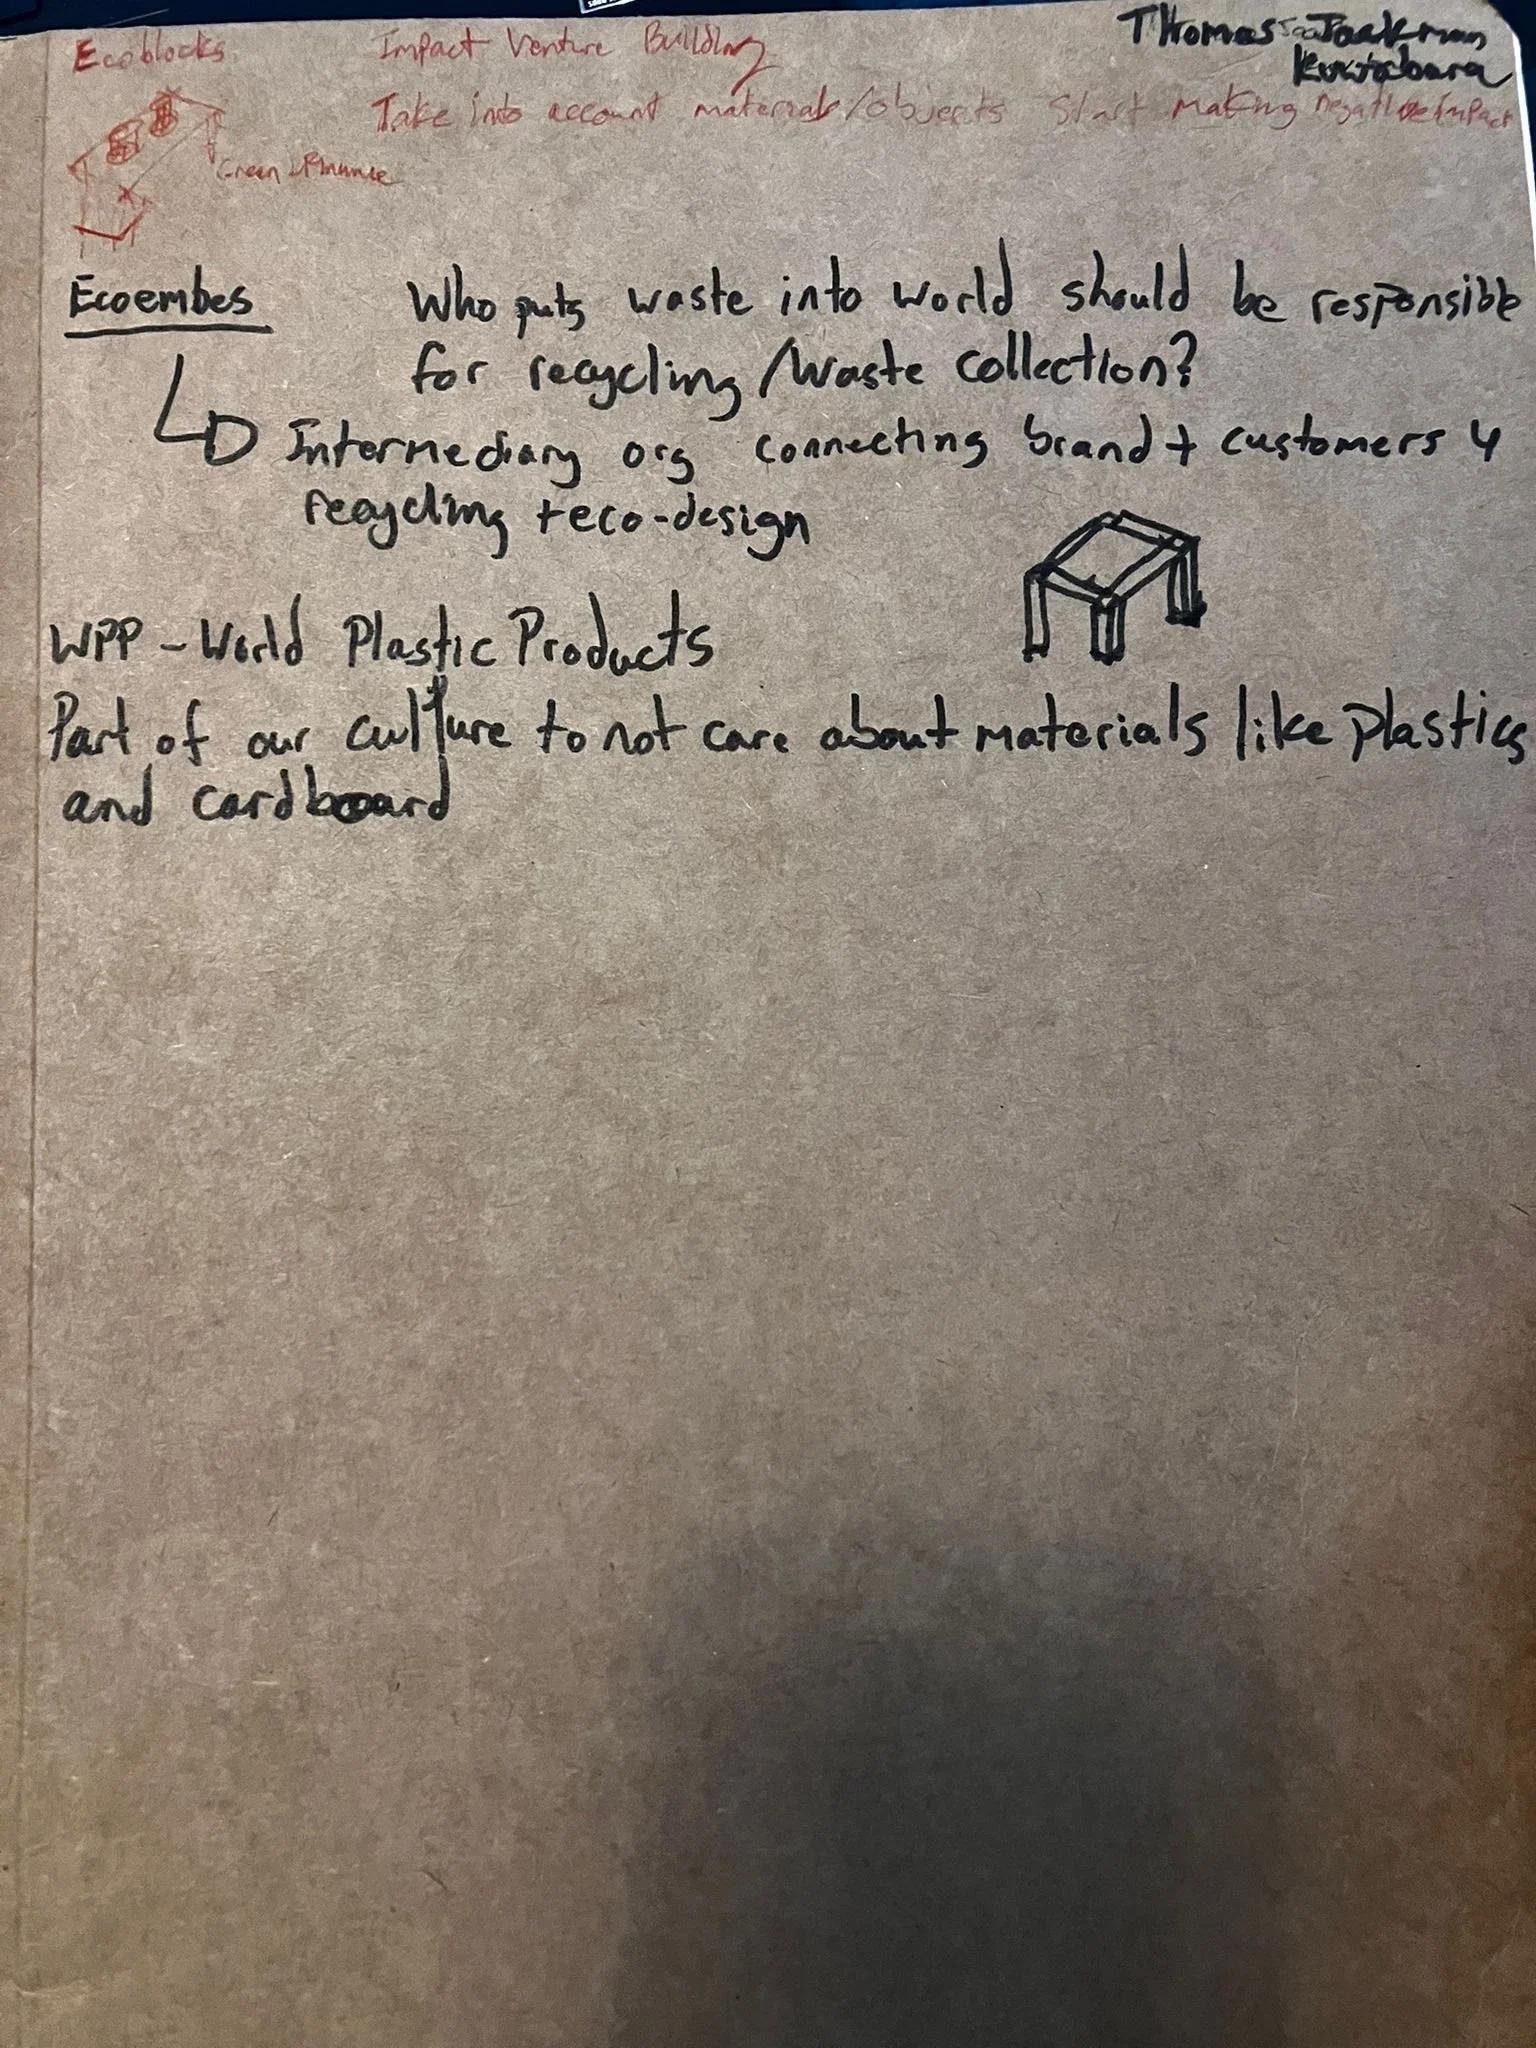 Ecoblocks Impact Venture Building
THomas Jackman
Kuwabara
Take into account materials/objects Start making negative impact
Green Finance
Ecoembes Who puts waste into world should be responsible
for recycling/waste collection?
Intermediary org connecting brand + customers 4
recycling + eco-design
WPP - World Plastic Products
Part of our culture to not care about materials like plastics
and cardboard